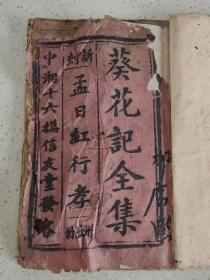 葵花記全集
新刻
孟日紅行孝
中湘十六總信友堂發客